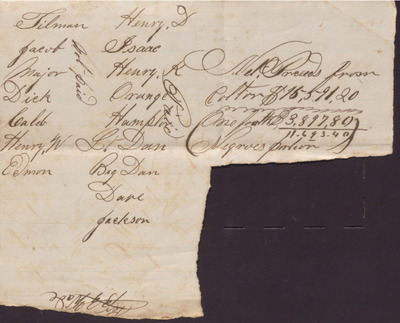 Tilman Henry, D
Jacob Isaac
Major Henry, K Net. Proceeds from
Dick Orange Cotton $15,591,20
Caleb Hampton One fourth 3,897,80
Henry, W L. Dan 11.693.40
Edmon Big Dan Negroes portion
Dave
Jackson
Not paid
Paid